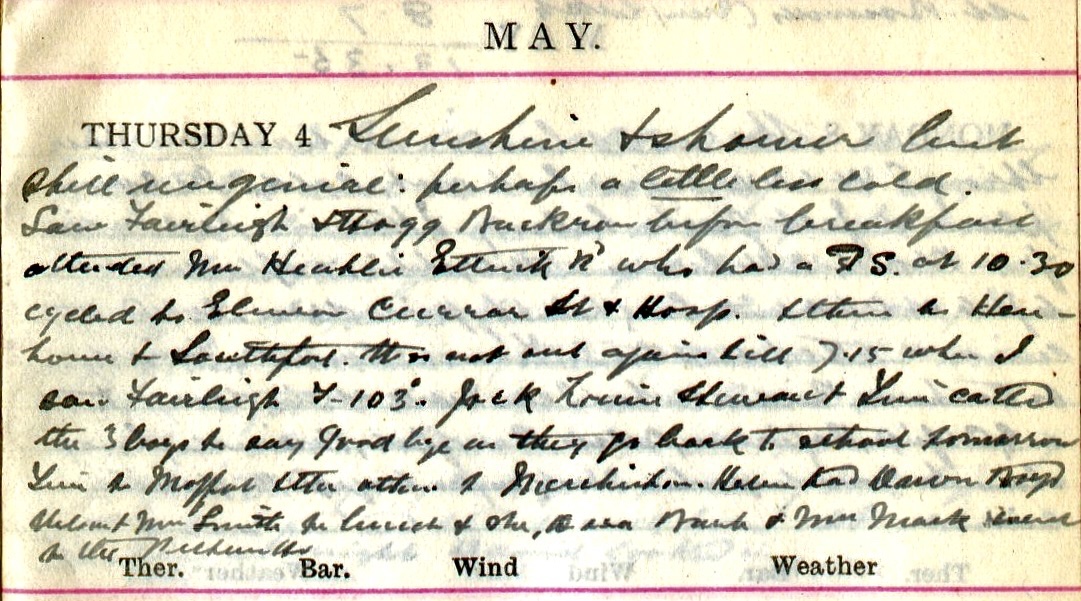 MAY.
THURSDAY 4 Sunshine & shower but
still ungenial: perhaps a little less cold.
Saw Fairleigh & Hogg Buckrow before breakfast
attended Mrs Ettrick Rd who had a F S. at 10.30
cycled to Curran St & Hosp. & then to
home & Southfod. Was not out again till 7.15 when I
saw Fairleigh T-103°. Jack Louie Stewart & Jim called
the 3 boys to say good bye as they go back to school tomorrow
Jim to Moffat & the others to Merchiston. Helen had
& Mrs Smith to lunch & she, & Mrs went
to the
Ther. Bar. Wind Weather